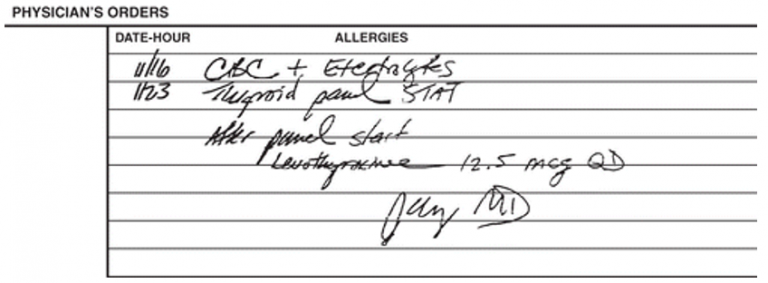 PHYSICIAN'S ORDERS
DATE-HOUR ALLERGIES
11/16 CBC + Electrolytes
1123 Thyroid panel STAT
After panel start
Levothyroxine 12.5 mcg QD
MD